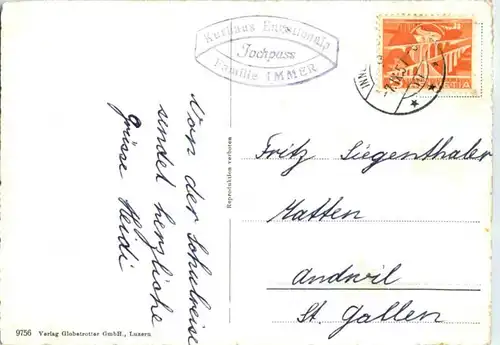 Kurhaus Engstlenalp
Jochpass
Familie IMMER
Von der Schulreise
sendet herzliche
Grüsse Heidi
Reproduktion verboten
Fritz Siegenthaler
Matten
Andwil
St. Gallen
9756 Verlag Globetrotter GmbH., Luzern